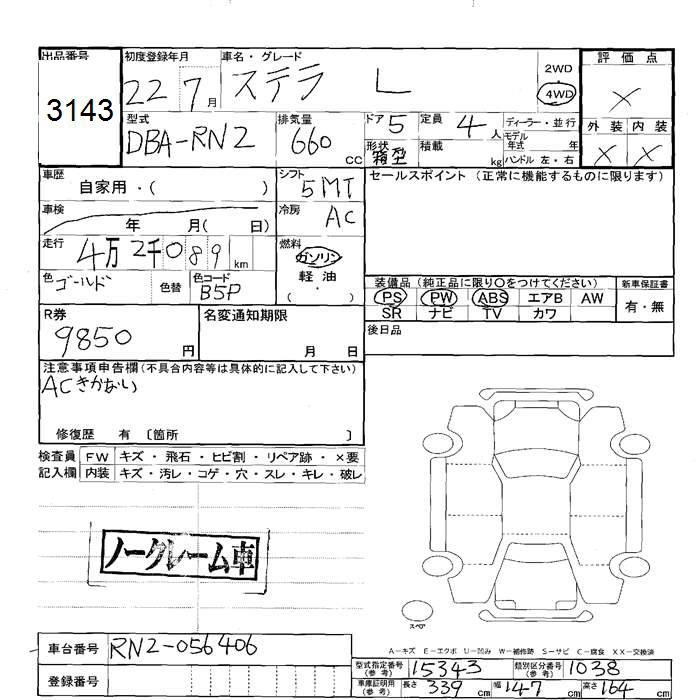 出品番号
3143
初度登録年月
22 7月
車名・グレード
ステラ L
2WD
4WD
評価点
×
外装 内装
× ×
型式
DBA-RN2
排気量
660 cc
ドア 5
定員 4人
形状 箱型
積載 kg
ディーラー・並行
モデル年式 年
ハンドル 左・右
車歴
自家用・( )
シフト
5MT
セールスポイント (正常に機能するものに限ります)
車検
年 月( 日)
冷房
AC
走行
4万2千089 km
燃料
ガソリン
軽・油
( ・ )
色
ゴールド
色替
色コード
B5P
装備品 (純正品に限り〇をつけてください)
新車保証書
PS PW ABS エアB AW
SR ナビ TV カワ
有・無
後日品
R券
9850円
名変通知期限
月 日
注意事項申告欄(不具合内容等は具体的に記入して下さい)
ACきかない
修復歴 有 〔箇所 〕
検査員 FW キズ・飛石・ヒビ割・リペア跡・×要
記入欄 内装 キズ・汚レ・コゲ・穴・スレ・キレ・破レ
ノークレーム車
スペア
A-キズ E-エクボ U-凹み W-補修跡 S-サビ C-腐食 XX-交換済
車台番号 RN2-056406
登録番号
型式指定番号(参考) 15343 類別区分番号(参考) 1038
車庫証明用(参考) 長さ 339cm 幅 147cm 高さ 164cm